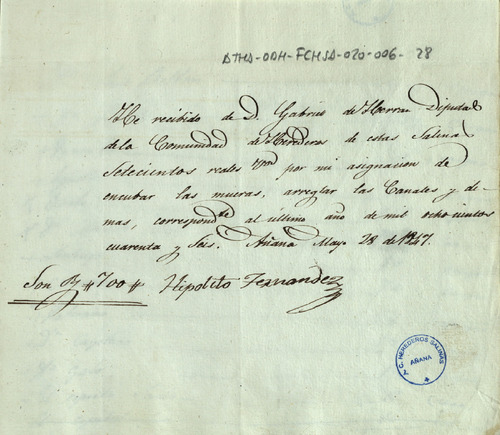 ATHA-DAH-FCHSA-020-006-28
He recibido de D. Gabriel de Herran Diputad
de la Comunidad de Herederos de estas Salina
Setecientos reales von por mi asignacion de
encubar las mueras, arreglar las Canales y de-
mas, correspondte al último año de mil ochocientos
cuarenta y Seis. Añana Mayo 28 de 1847.
Son Rs #700# Hipolito Fernandez
J. C. HEREDEROS SALINAS
AÑANA